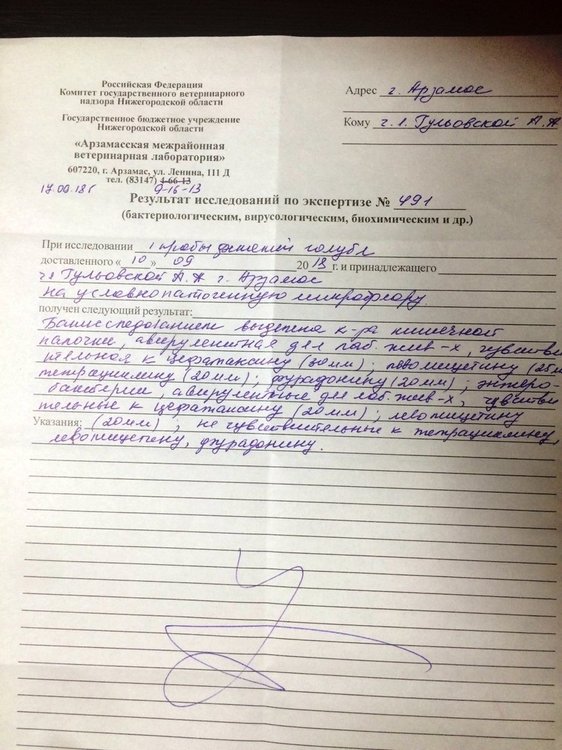 Российская Федерация
Комитет государственного ветеринарного
надзора Нижегородской области
Государственное бюджетное учреждение
Нижегородской области
«Арзамасская межрайонная
ветеринарная лаборатория»
607220, г. Арзамас, ул. Ленина, 111 Д
тел. (83147) 4-66-13
9-16-13
Адрес г. Арзамас
Кому г. Гульовской А.А
Результат исследований по экспертизе № 491
(бактериологическим, вирусологическим, биохимическим и др.)
При исследовании 1 пробы голубя
доставленного « 10 » 09 2013 г. и принадлежащего
Гульовской А.А г. Арзамас
на условнопатогенную микрофлору
получен следующий результат:
Бакисследованием выделена к-ра кишечной
палочки, авирулентная для лаб. жив-х, чувстви
тельная к цефатаксину (30мм), левомицетину (25мм
тетрациклину (20мм), фурадонину (20мм); энтеро-
бактерии, авирулентные для лаб. жив-х, чувстви
тельные к цефатаксину (20мм), левомицетину
Указания: (20мм), не чувствительные к тетрациклину,
левомицетину, фурадонину.